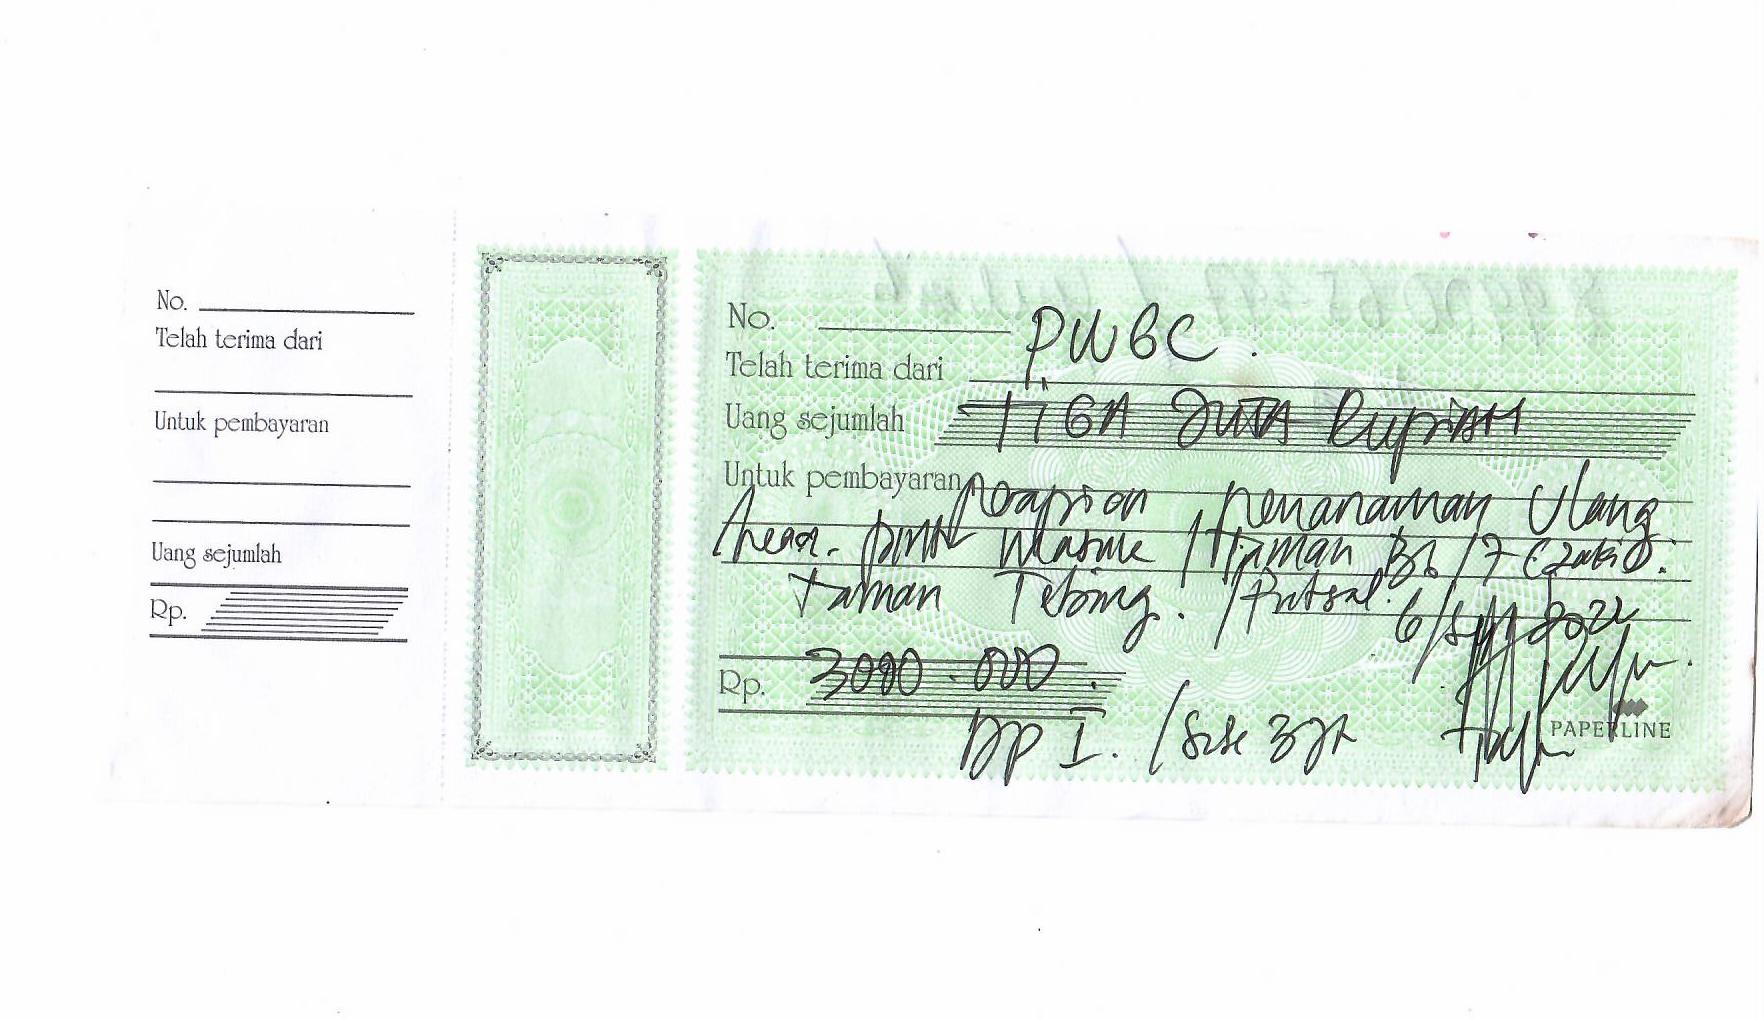 No.
Telah terima dari
Untuk pembayaran
Uang sejumlah
Rp.
No.
Telah terima dari PWBC.
Uang sejumlah TIGA JUTA RupiAH
Untuk pembayaran penanaman Ulang
Area. / Taman B6/7
Taman Tebing. / Futsal. 6/ 2022
Rp. 3000.000.
DP I. /
PAPERLINE